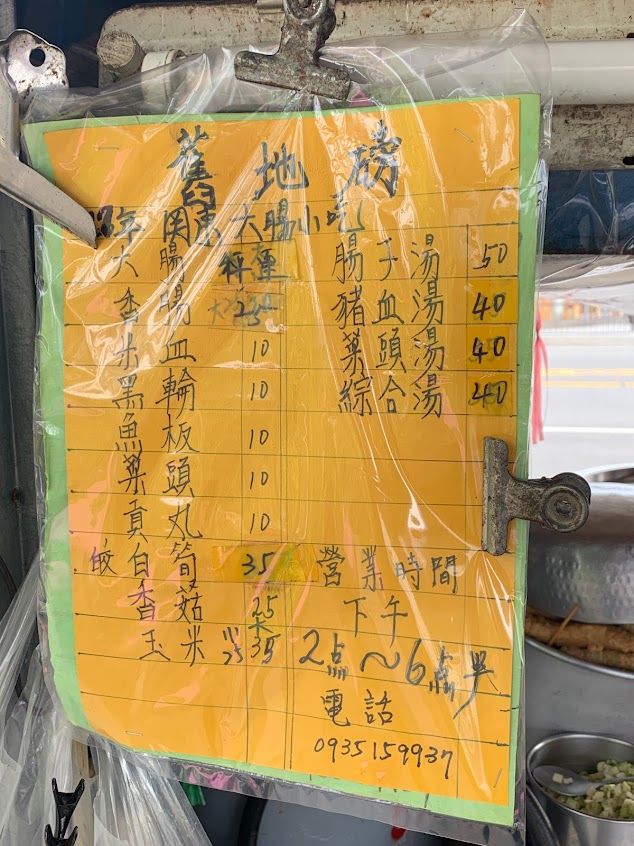 舊地磅
年関東大腸小吃
大腸 秤重 腸子湯 50
香腸 25 豬血湯 40
米血 10 菜頭湯 40
黑輪 10 綜合湯 40
魚板 10
菜頭 10
貢丸 10
皎白筍 35 營業時間
香菇 25 下午
玉米 35 2点～6点半
電話
0935159937